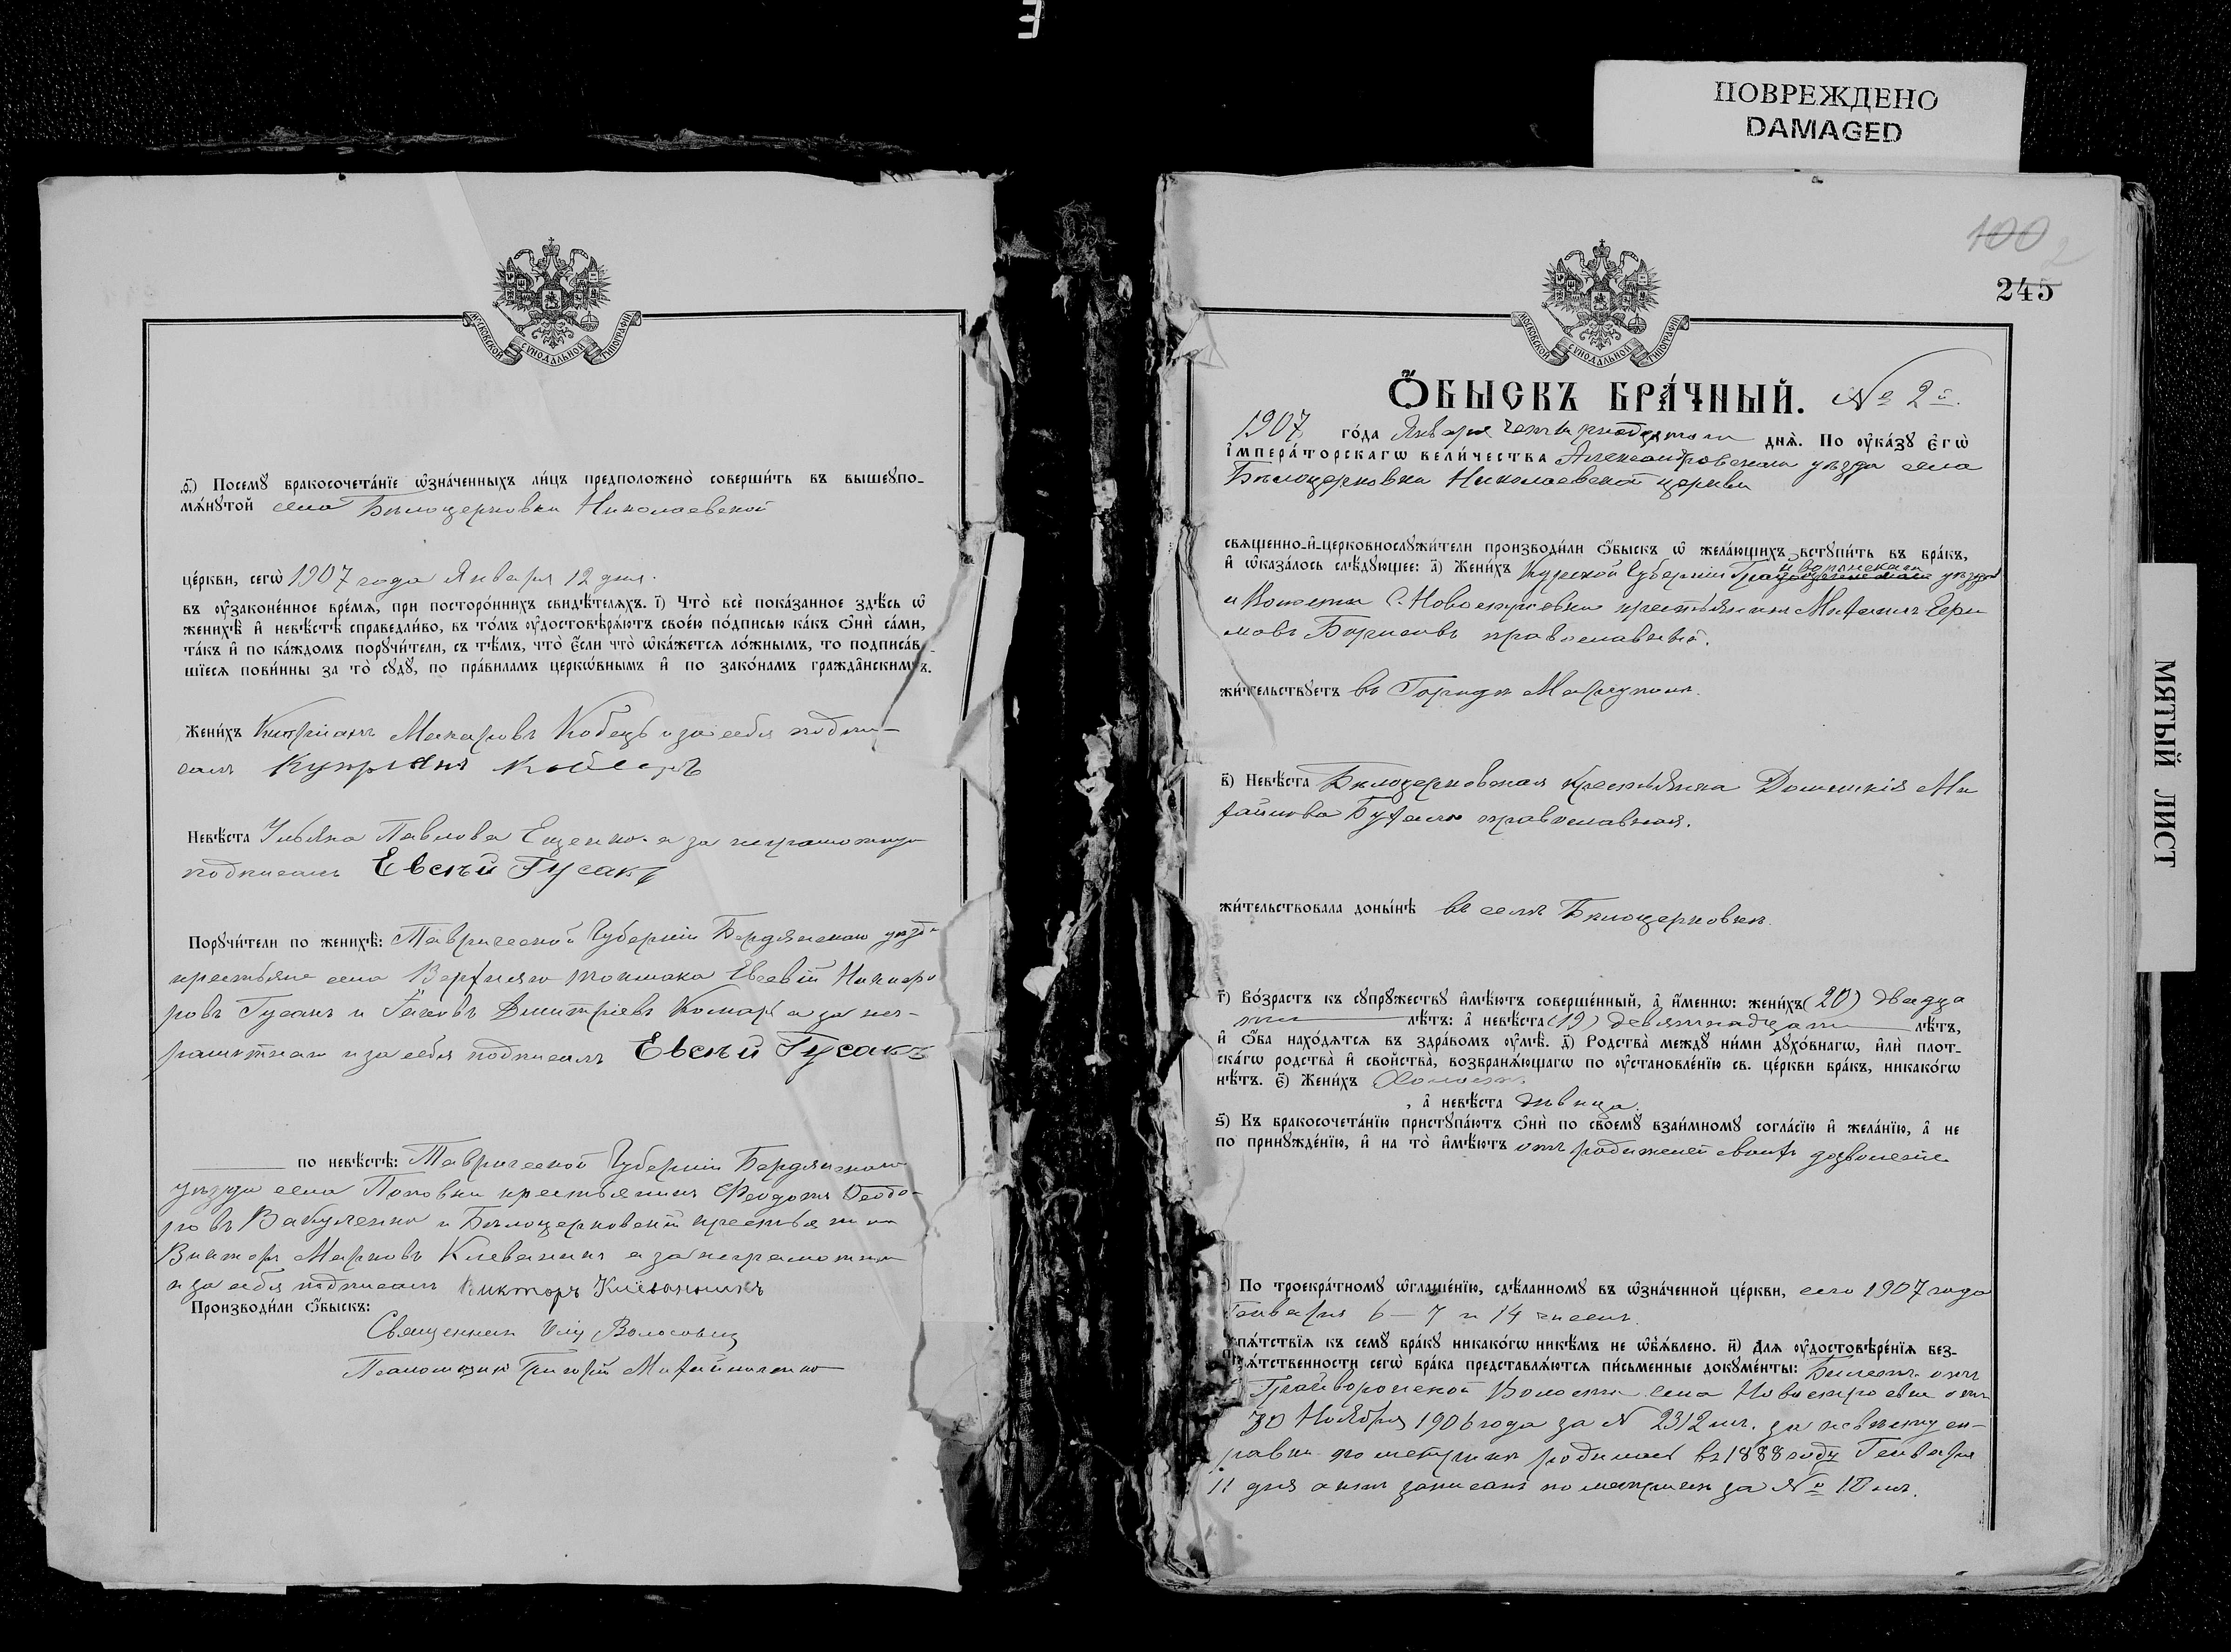 ПОВРЕЖДЕНО
DAMAGED
МЯТЫЙ ЛИСТ
МОСКОВСКОЙ СѴНОДАЛЬНОЙ ТИПОГРАФІИ
ѳ҃) Посемꙋ̀ бракосочета́нїе ѡ҆зна́ченныхъ ли́цъ предположено̀ соверши́ть въ вышеꙋпо-
мѧ́нꙋтой села Бѣлоцерковки Николаевской
це́ркви, сегѡ̀ 1907 года Января 12 дня.
въ ᲂу҆зако́ненное вре́мѧ, при посторо́ннихъ свидѣ́телѧхъ. і҃) Что̀ всѐ пока́занное здѣ́сь ѡ҆
женихѣ̀ и҆ невѣ́стѣ справедли́во, въ то́мъ ᲂу҆достовѣрѧ́ютъ свое́ю по́дписью ка́къ ѻ҆нѝ са́ми,
та́къ и҆ по ка́ждомъ порꙋчи́тели, съ тѣ́мъ, что̀ є҆́сли что̀ ѡ҆ка́жетсѧ ло́жнымъ, то подписа́в-
шїесѧ пови́нны за то̀ сꙋдꙋ̀, по пра́виламъ церкѡ́внымъ и҆ по зако́намъ гражда̑нскимъ.
Жени́хъ Кипріанъ Макаровъ Кобецъ и за себя подпи-
салъ Куприянъ Кобецъ
Невѣ́ста Ульяна Павлова Ещенко а за неграмотную
подписалъ Евсѣй Гусакъ
Порꙋчи́тели по женихѣ̀: Таврической Губерніи Бердянскаго уѣзда
крестьяне села Верхняго Токмака Евсевій Никифо
ровъ Гусакъ и Яковъ Димитріевъ Комаръ а за нег-
рамотнаго и за себя подписалъ Евсѣй Гусакъ
по невѣ́стѣ: Таврической Губерніи Бердянскаго
уѣзда села Поповки крестьянинъ Феодотъ Ѳеодо-
ровъ Вакуленко и Бѣлоцерковскій крестьянинъ
Викторъ Марковъ а за неграмотнаго
и за себя подписалъ Викторъ
Производи́ли ѻ҆́быскъ:
Священникъ Волосовичъ
Псаломщикъ Григорій Михайличенко
100 2
245
МОСКОВСКОЙ СѴНОДАЛЬНОЙ ТИПОГРАФІИ
Ѻ҆́БЫСКЪ БРА́ЧНЫЙ. № 2й.
1907 го́да Января четырнадцатаго днѧ̀. По ᲂу҆ка́зꙋ є҆гѡ̀
і҆мпера́торскагѡ вели́чества Александровскаго уѣзда села
Бѣлоцерковки Николаевской церкви
свѧще́нно-и҆-церковнослꙋжи́тели производи́ли ѻ҆́быскъ ѡ҆ жела́ющихъ встꙋпи́ть въ бра́къ,
и҆ ѡ҆каза́лось слѣ́дꙋющее: а҃) Жени́хъ Курской Губерніи Грайворонскаго уѣзда
и Волости С. Новостроевки крестьянинъ Михаилъ
Борисовъ православный.
жи́тельствꙋетъ въ Городѣ Маріуполѣ.
в҃) Невѣ́ста Бѣлоцерковская крестьянка Домникія Ми
хайлова православная.
жи́тельствовала доны́нѣ въ селѣ Бѣлоцерковкѣ.
г҃) Во́зрастъ къ сꙋпрꙋ́жествꙋ и҆мѣ́ютъ соверше́нный, а҆ и҆́меннѡ: жени́хъ (20) двадца
ти лѣ́тъ: а҆ невѣ́ста (19) девятнадцати лѣ́тъ,
и҆ ѻ҆́ба нахо́дѧтсѧ въ здра́вомъ ᲂу҆мѣ̀. д҃) Родства̀ междꙋ̀ ни́ми дꙋхо́внагѡ, и҆лѝ плот-
ска́гѡ родства̀ и҆ свойства̀, возбранѧ́ющагѡ по ᲂу҆становле́нїю св. це́ркви бра́къ, никако́гѡ
нѣ́тъ. є҃) Жени́хъ Холостъ
, а҆ невѣ́ста дѣвица.
ѕ҃) Къ бракосочета́нїю пристꙋпа́ютъ ѻ҆нѝ по своемꙋ̀ взаи́мномꙋ согла́сїю и҆ жела́нїю, а҆ не
по принꙋжде́нїю, и҆ на то̀ и҆мѣ́ютъ отъ родителей своихъ дозволеніе
) По троекра́тномꙋ ѡ҆глаше́нїю, сдѣ́ланномꙋ въ ѡ҆зна́ченной це́ркви, сего 1907 года
Генваря 6 – 7 и 14 чиселъ.
пѧ́тствїѧ къ семꙋ̀ бра́кꙋ никако́гѡ никѣ́мъ не ѡ҆б̾ѧ́влено. и҃) Длѧ ᲂу҆достовѣре́нїѧ без-
пѧ́тственности сегѡ̀ бра́ка представлѧ́ютсѧ пи́сьменные докꙋме́нты: Билетъ отъ
Грайворонской Волости села Новостроевки отъ
30 Ноября 1906 года за № 2312мъ. за невѣсту сп-
равки по метрикѣ родилась въ 1888 году Генваря
11 дня актъ записанъ по метрикѣ за № 10мъ.